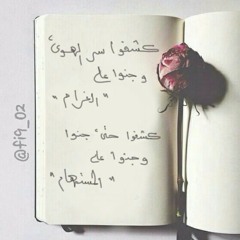 كشفوا سر الهوىٰ
وجنوا على
"الغرام"
كشفوا حتىٰ جنوا
وجنوا على
"المستهام"
@fi9_02